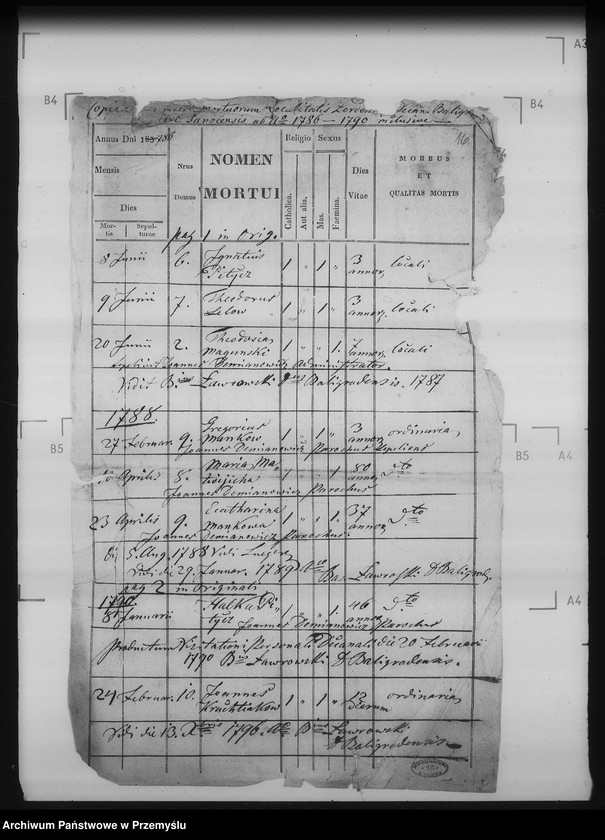 B4
B4
A3
Copia mortuorum Localitatis Decan. Baligrod
Sanociensis ab Ao 1786 — 1790 inclusive —
16.
Annus Dni 183 786
Mensis
Dies
Mortis
Sepulturae
Nrus Domus
NOMEN MORTUI
Religio
Catholica.
Aut alia.
Sexus
Mas.
Faemina.
Dies Vitae
MORBUS ET QUALITAS MORTIS
pag 1 in Orig.
8 Junii 6. Ignatius 1 " 1 " 3 annor. locali
Pitycz
9 Junii 7. Theodorus 1 " 1 " 3 annor. locali
Lelow
20 Junii 2. Theodosia 1 " " 1. 7 annor. locali
Magunski
sepelivit Joannes Demianowicz Administrator.
Vidit Lawrowski Baligradensis. 1787
1788.
27 Februar. 9. Gregorius Mankow 1 " 1 " 3 annor. ordinaria
Joannes Demianowicz Parochus sepeliens
Aprilis 8. Maria 1 " " 1. 80 annor. dto
Joannes Demianowicz Parochus
23 Aprilis 9. Ecatharina Mankowa 1 " " 1 37 annor. dto
Joannes Demianowicz Parochus.
5. Aug. 1788 Vidi
Vidi die 29. Januar. 1789 Bas. Lawrowski D. Baligrod.
pag 2 in Originali
1790.
8 Januarii Halka Pitycz " " 1. 46 annor. dto
Joannes Demianowicz Parochus
Productum Visitationi Personali Decanali die 20 Februarii
1790 Lawrowski D Baligradensis.
24 Februar. 10. Joannes 1 " 1 " 13 dierum ordinaria
Kruchtiakow
Vidi die 13. Xbris 1796. Lawrowski
D Baligradensis
B5
B5
A4
A4
Archiwum Państwowe w Przemyślu